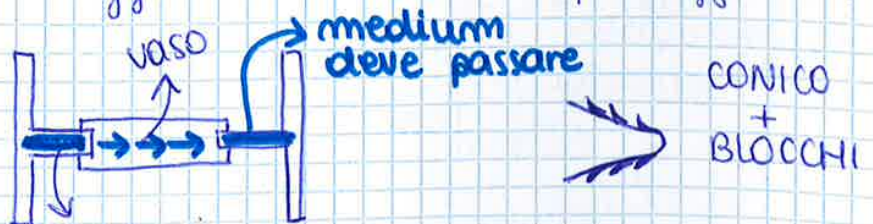 vaso
medium
deve passare
CONICO
+
BLOCCHI